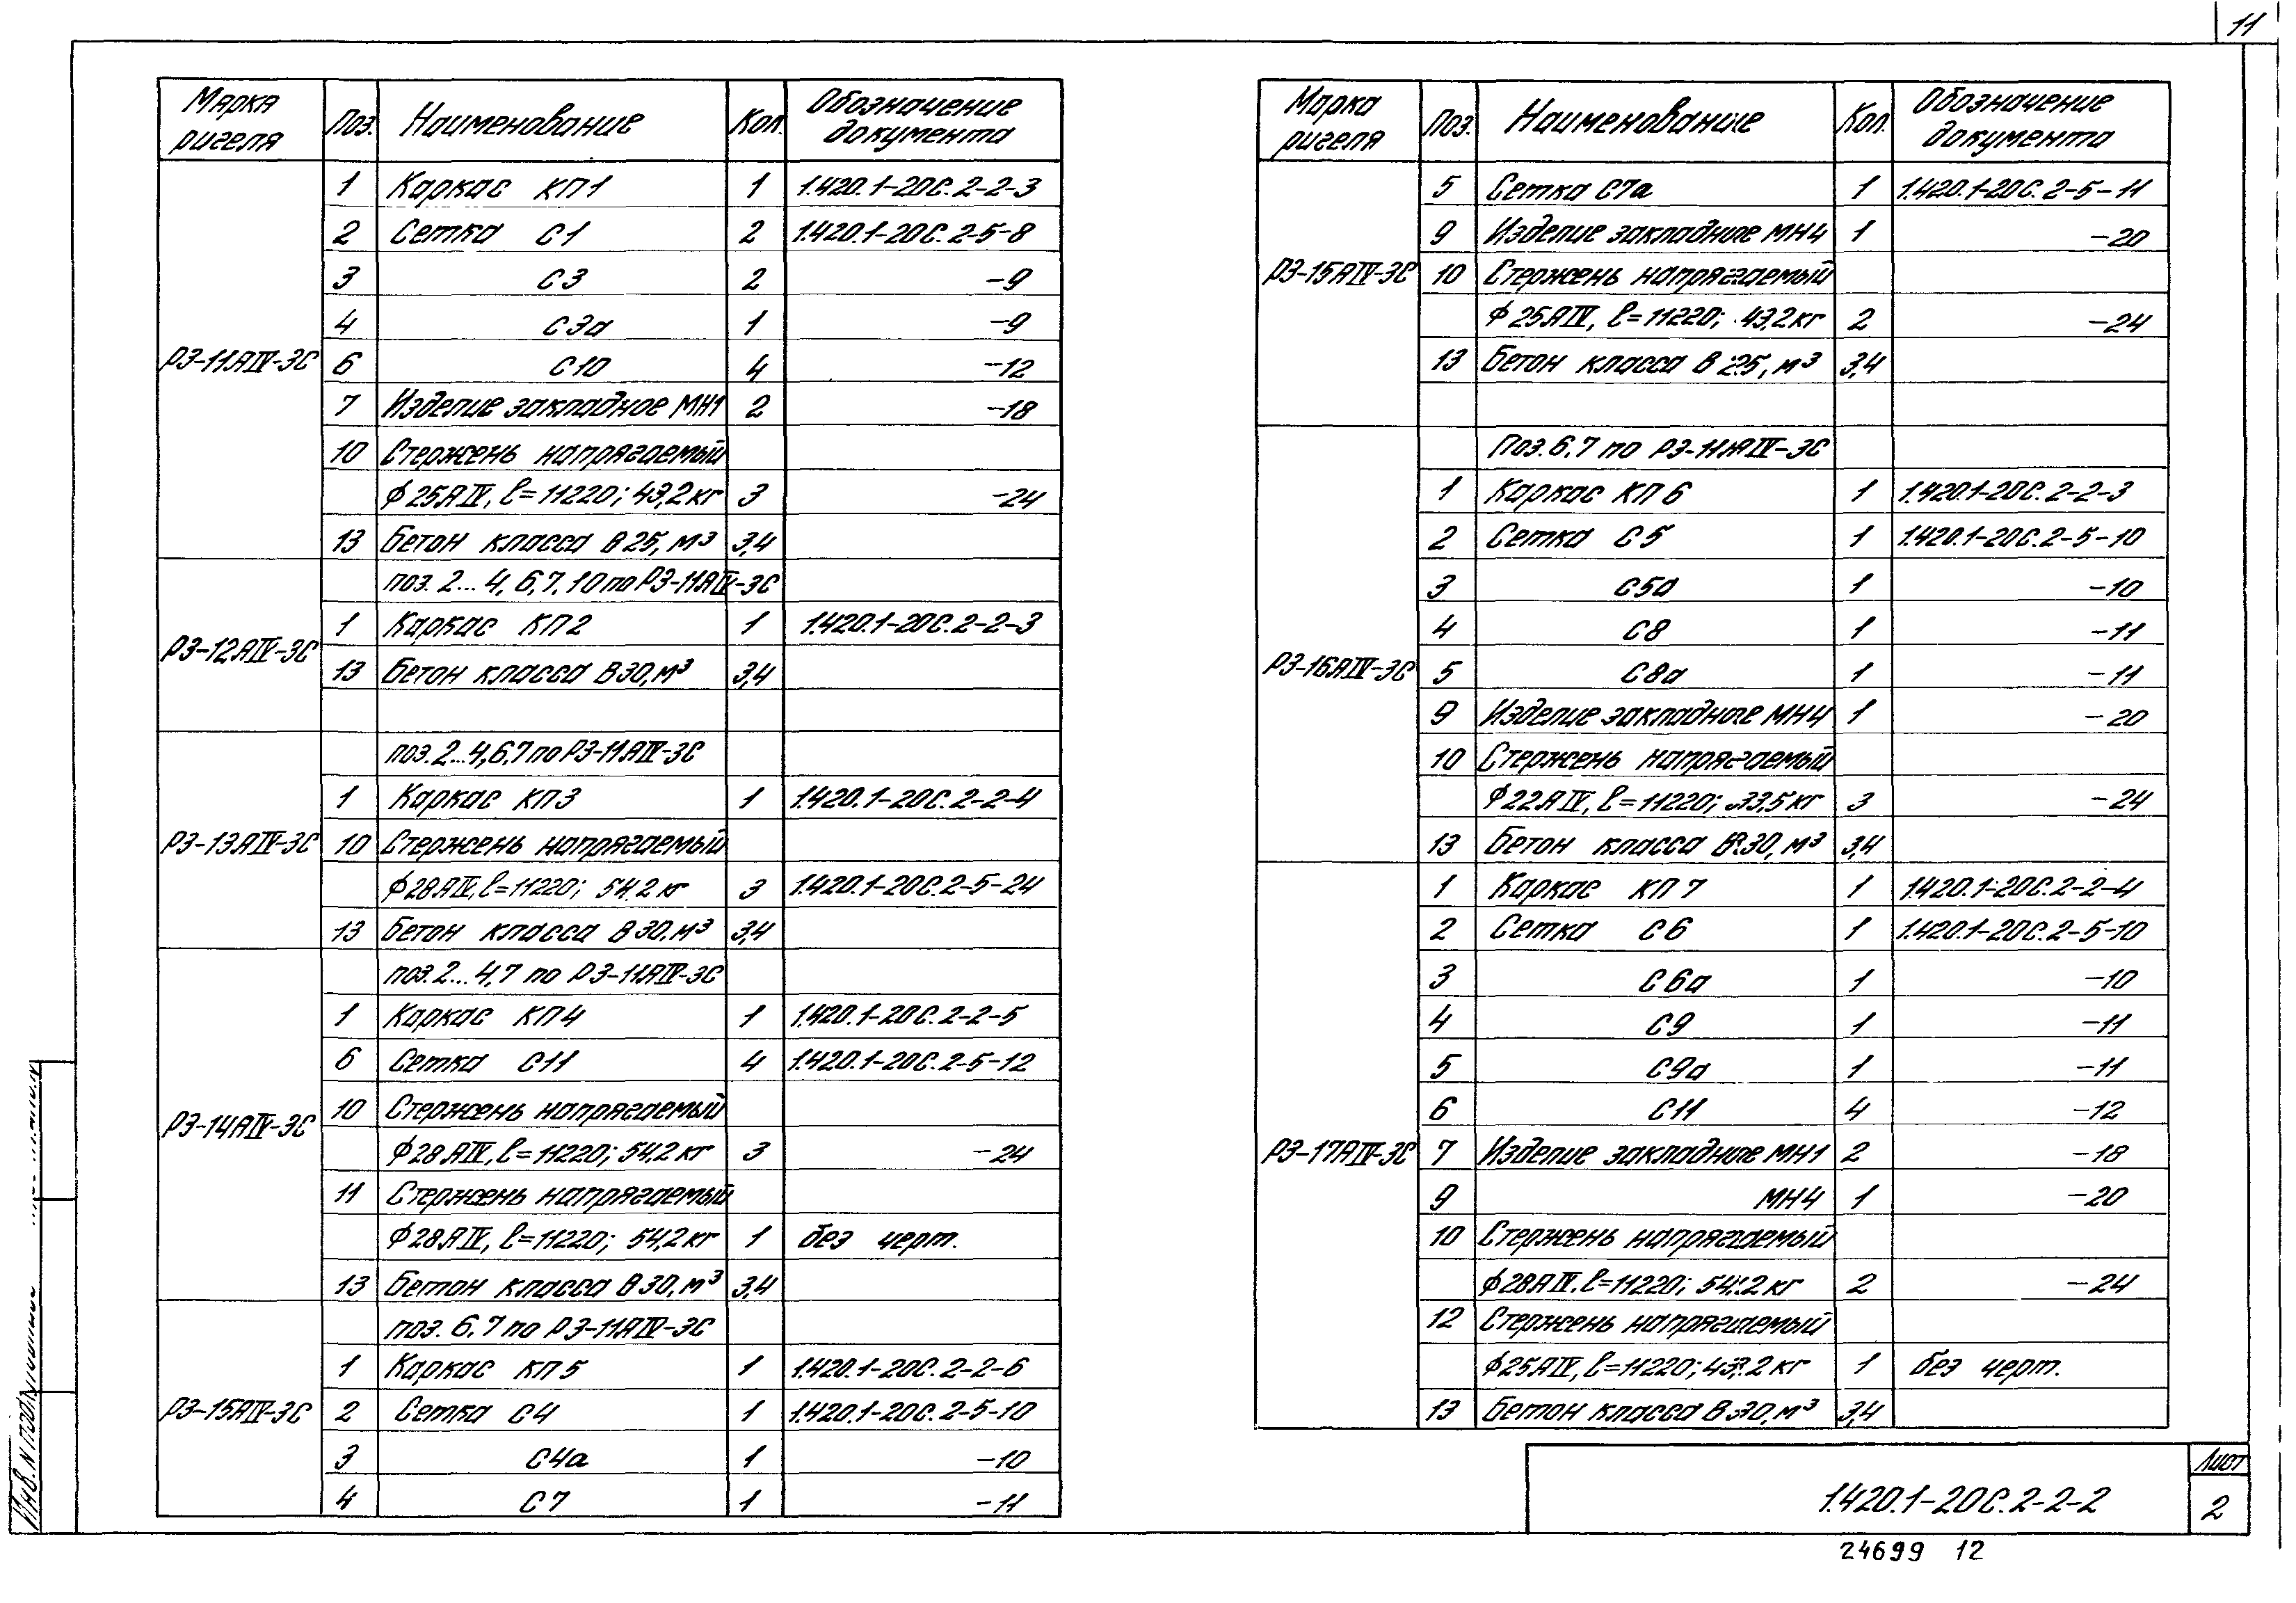 11
Марка ригеля | Поз. | Наименование | Кол. | Обозначение документа
РЗ-11АIV-3С
1 | Каркас КП1 | 1 | 1.420.1-20С.2-2-3
2 | Сетка С1 | 2 | 1.420.1-20С.2-5-8
3 | С3 | 2 | -9
4 | С3а | 1 | -9
6 | С10 | 4 | -12
7 | Изделие закладное МН1 | 2 | -18
10 | Стержень напрягаемый
ϕ25АIV, ℓ=11220; 43,2кг | 3 | -24
13 | Бетон класса В25, м³ | 3,4
РЗ-12АIV-3С
поз. 2...4, 6,7,10 по РЗ-11АIV-3С
1 | Каркас КП2 | 1 | 1.420.1-20С.2-2-3
13 | Бетон класса В30, м³ | 3,4
РЗ-13АIV-3С
поз. 2...4,6,7 по РЗ-11АIV-3С
1 | Каркас КП3 | 1 | 1.420.1-20С.2-2-4
10 | Стержень напрягаемый
ϕ28АIV, ℓ=11220; 54,2кг | 3 | 1.420.1-20С.2-5-24
13 | Бетон класса В30, м³ | 3,4
РЗ-14АIV-3С
поз. 2...4,7 по РЗ-11АIV-3С
1 | Каркас КП4 | 1 | 1.420.1-20С.2-2-5
6 | Сетка С11 | 4 | 1.420.1-20С.2-5-12
10 | Стержень напрягаемый
ϕ28АIV, ℓ=11220; 54,2кг | 3 | -24
11 | Стержень напрягаемый
ϕ28АIV, ℓ=11220; 54,2кг | 1 | без черт.
13 | Бетон класса В30, м³ | 3,4
РЗ-15АIV-3С
поз. 6,7 по РЗ-11АIV-3С
1 | Каркас КП5 | 1 | 1.420.1-20С.2-2-6
2 | Сетка С4 | 1 | 1.420.1-20С.2-5-10
3 | С4а | 1 | -10
4 | С7 | 1 | -11
Марка ригеля | Поз. | Наименование | Кол. | Обозначение документа
РЗ-15АIV-3С
5 | Сетка С7а | 1 | 1.420.1-20С.2-5-11
9 | Изделие закладное МН4 | 1 | -20
10 | Стержень напрягаемый
ϕ25АIV, ℓ=11220; 43,2кг | 2 | -24
13 | Бетон класса В25, м³ | 3,4
РЗ-16АIV-3С
Поз. 6,7 по РЗ-11АIV-3С
1 | Каркас КП6 | 1 | 1.420.1-20С.2-2-3
2 | Сетка С5 | 1 | 1.420.1-20С.2-5-10
3 | С5а | 1 | -10
4 | С8 | 1 | -11
5 | С8а | 1 | -11
9 | Изделие закладное МН4 | 1 | -20
10 | Стержень напрягаемый
ϕ22АIV, ℓ=11220; 33,5кг | 3 | -24
13 | Бетон класса В30, м³ | 3,4
РЗ-17АIV-3С
1 | Каркас КП7 | 1 | 1.420.1-20С.2-2-4
2 | Сетка С6 | 1 | 1.420.1-20С.2-5-10
3 | С6а | 1 | -10
4 | С9 | 1 | -11
5 | С9а | 1 | -11
6 | С11 | 4 | -12
7 | Изделие закладное МН1 | 2 | -18
9 | МН4 | 1 | -20
10 | Стержень напрягаемый
ϕ28АIV, ℓ=11220; 54,2кг | 2 | -24
12 | Стержень напрягаемый
ϕ25АIV, ℓ=11220; 43,2кг | 1 | без черт.
13 | Бетон класса В30, м³ | 3,4
1.420.1-20С.2-2-2
Лист
2
24699 12
Инв. N подл.